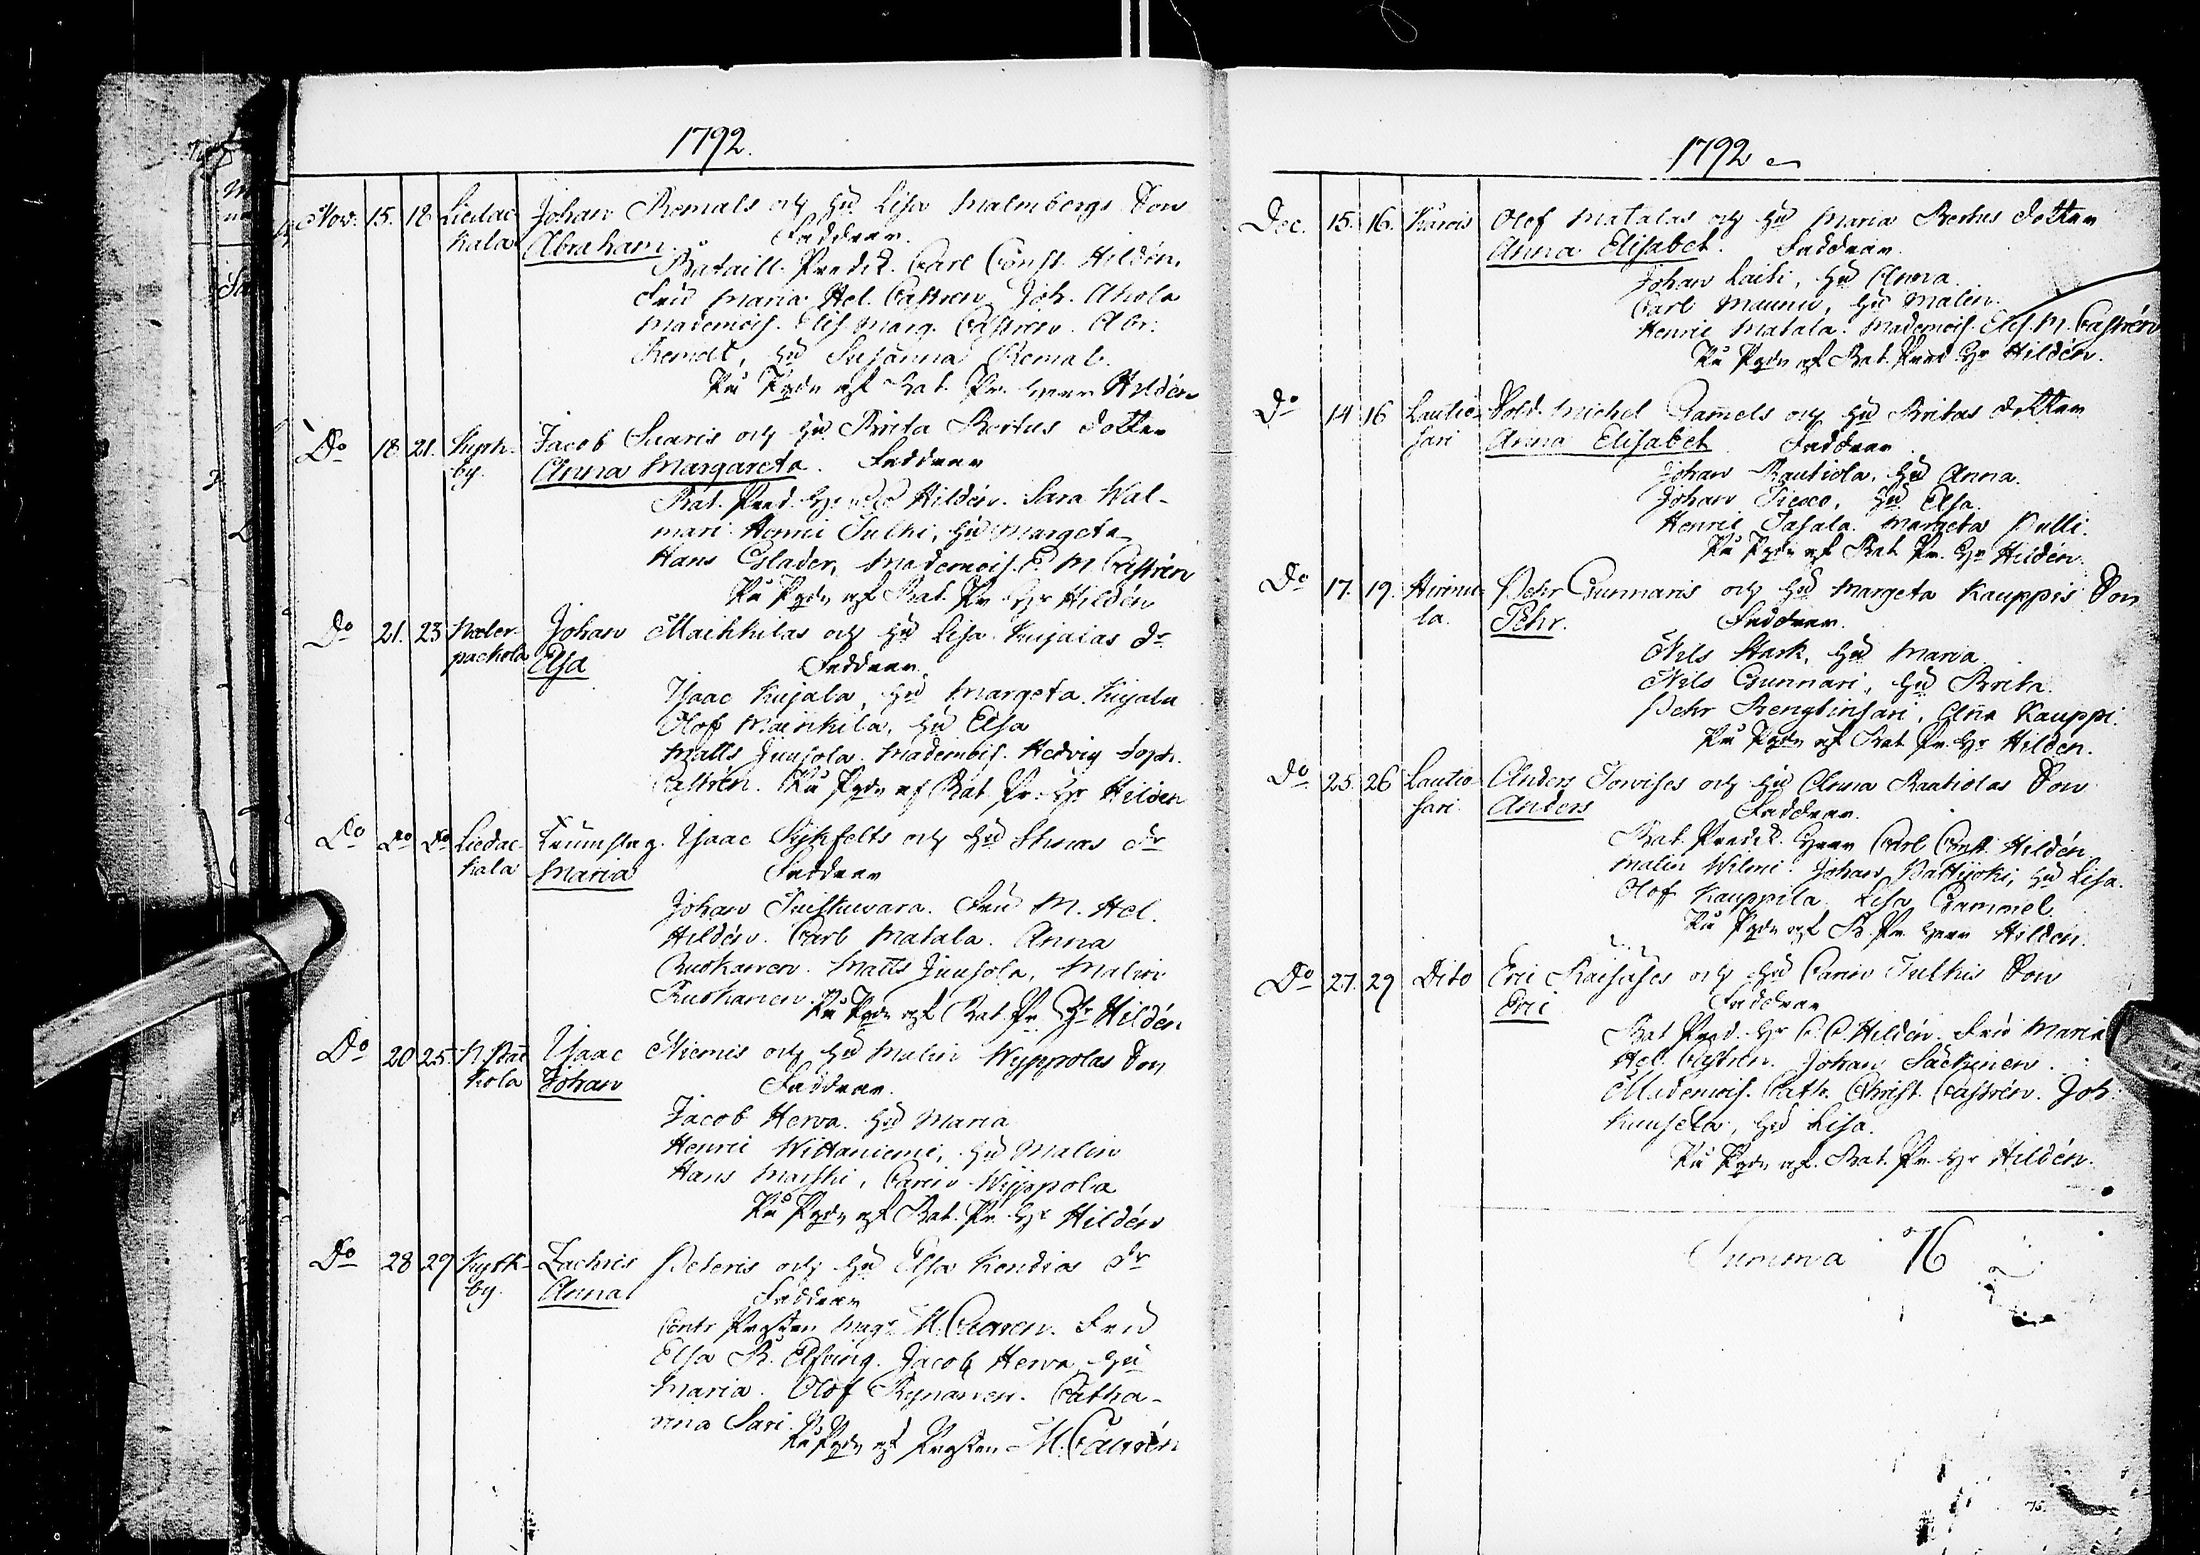 1792.
Nov. 15. 18. Liedac Johan Remals och Hu Lisa Malmbergs Son
kala Abraham. Faddrar.
Bataill. Predik. Carl Const. Hildén.
Fru Maria Hel. Castren, Joh. Ahola
Mademois. Elis Marg. Castren. Abr.
Remal, Hu Susanna Remal.
Hildén
Do 18. 21. Kyrk- Jacob Saaris och Hu Brita Bertus dotter
by. Anna Margareta. Faddrar
Bat. Pred. Hr Hildén. Sara Wal-
mari. Henric Tulki, Hu Margeta
Hans Glader, Mademois. E. M. Castrén
af Bat. Pr. Hr Hildén
Do 21. 23 Pater- Johan Maihkilas och Hu Lisa Kujalas dr
packola Elsa Faddrar.
Isaac Kujala, Hu Margeta Kujala
Olof Maihkila, Hu Elsa
Matts Juujola. Mademois. Hedvig Soph.
Castrén. af Bat. Pr. Hr Hildén
Do Do Do Liedac- Trumslag. Isaac Sykfelts och Hu Stinas dr
kala Maria Faddrar
Johan Tuiskuvara. Fru M. Hel.
Hildén. Carl Matala. Anna
Ruskanen. Matts Juujola, Malin
Ruskanen. af Bat. Pr. Hr Hildén
Do 20 25 N. Pac Isaac Niemis och Hu Malin Wyppolas Son
kola Johan Faddrar.
Jacob Herva. Hu Maria
Henric Wittaniemi, Hu Malin
Hans Maiski, Carin Wyppola
af Bat. Pr. Hr Hildén
Do 28 29 Kyrk- Zachris Peteris och Hu Elsa Kondias dr
by. Anna Faddrar
Contr Prosten Mag. M. Castren. Fru
Elsa R. Elfving. Jacob Herva, Hu
Maria. Olof Rynanen. Catha-
rina Sari. af Prosten M. Castrén
1792
Dec. 15. 16. Karois Olof Matalas och Hu Maria Bertus dotter
Anna Elisabet. Faddrar.
Johan Laiti, Hu Anna.
Carl Maunu, Hu Malin.
Henric Matala. Mademois. Elis. M. Castrén
af Bat. Pred. Hr Hildén.
Do 14 16 Lautio- Sold. Michel Gamels och Hu Britas dotter
sari Anna Elisabet Faddrar
Johan Rautiola. Hu Anna.
Johan Hu Elsa.
Henric Jasala. Margeta Pulli.
af Bat. Pr. Hr Hildén.
Do 17. 19. Hirmu- Pehr Gunnaris och Hu Margeta Kauppis Son
la. Pehr. Faddrar.
Nils Stark, Hu Maria.
Nils Gunnari, Hu Brita.
Pehr Rengtinsari, Anna Kauppi.
af Bat. Pr. Hr Hildén.
Do 25. 26 Lautio- Anders Torvises och Hu Anna Raatiolas Son
sari Anders Faddrar.
Bat. Predik. Herr Carl Const. Hildén
Malin Wilmi. Johan Pattijoki, Hu Lisa.
Olof Kauppila. Lisa Gammel
af B. Pr. Herr Hildén.
Do 27. 29 Dito Eric Kaisases och Hu Carin Tulkis Son
Eric Faddrar
Bat. Pred. Hr C. C. Hildén. Fru Maria
Hel. Castrén. Johan Säckinen.
Mademois. Cath. Christ. Castrén. Joh.
Kunsela, Hu Lisa.
af. Bat. Pr. Hr Hildén.
Summa 76